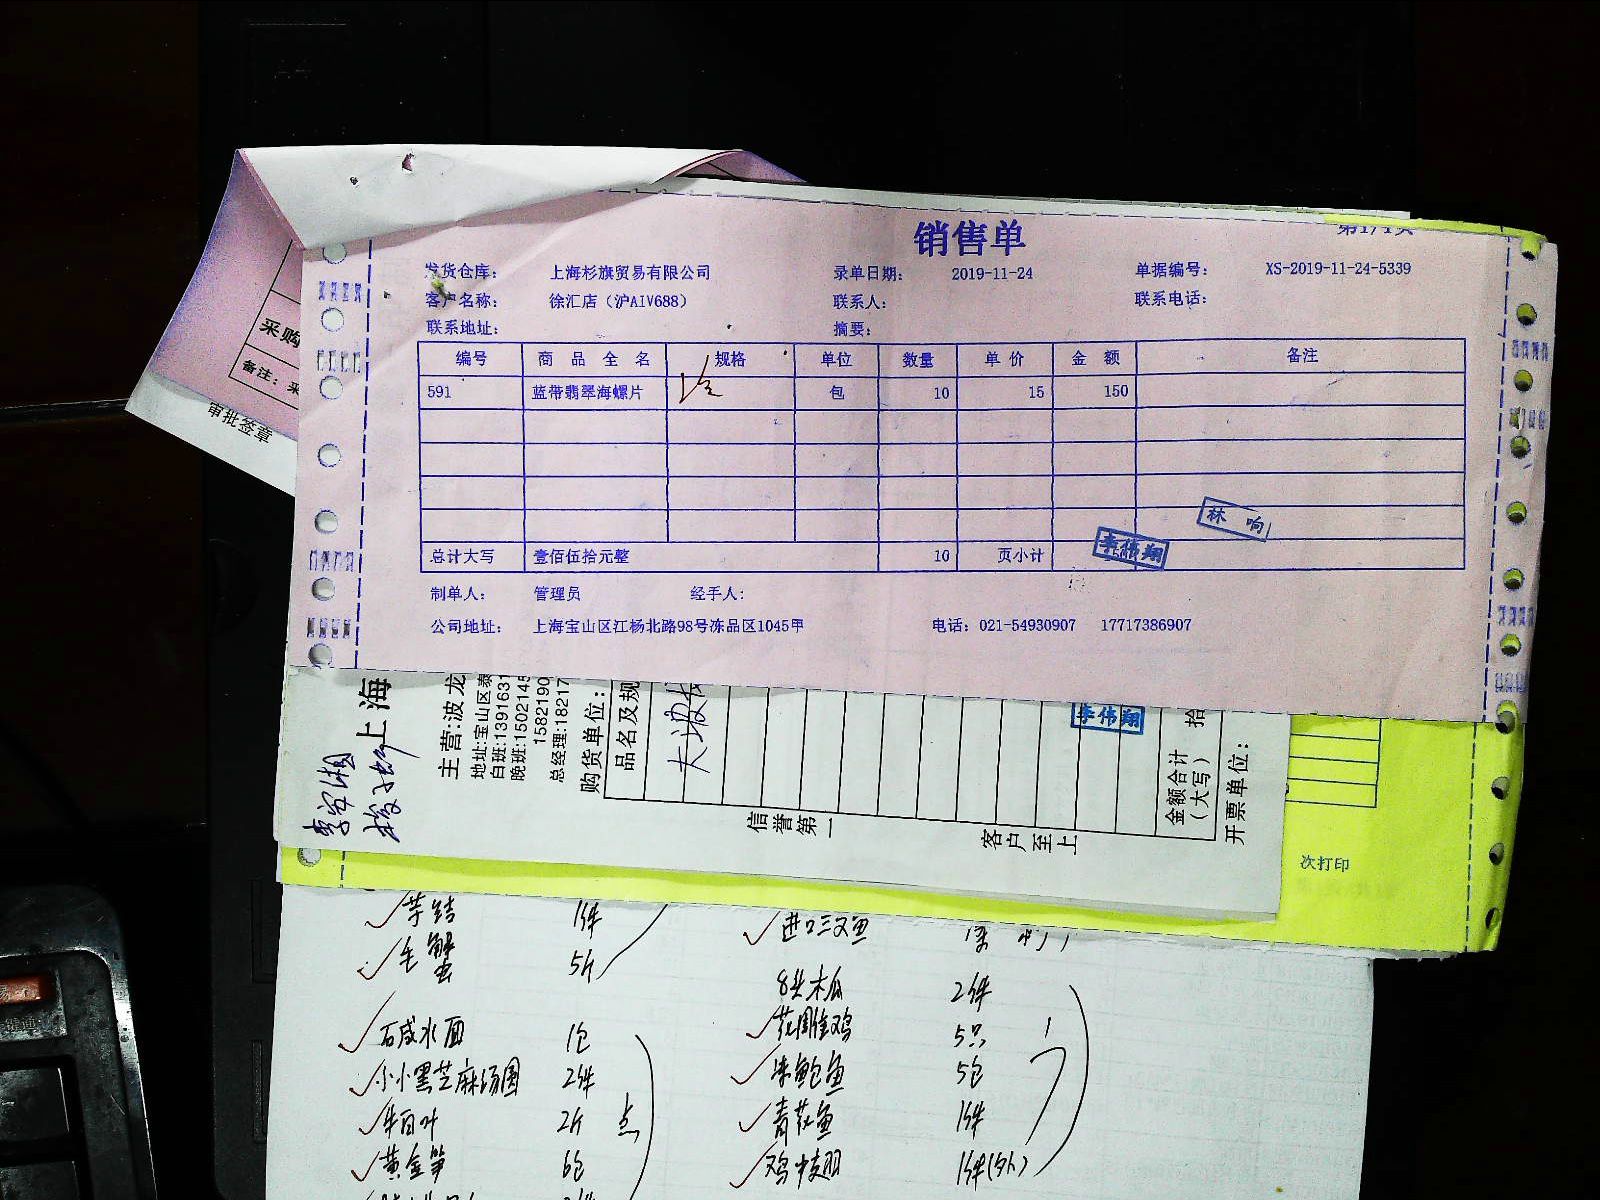 销售单
第1/1页
发货仓库： 上海杉旗贸易有限公司 录单日期： 2019-11-24 单据编号： XS-2019-11-24-5339
客户名称： 徐汇店（沪AIV688） 联系人： 联系电话：
联系地址： 摘要：
编号 商品全名 规格 单位 数量 单价 金额 备注
591 蓝带翡翠海螺片 包 10 15 150
林响
总计大写 壹佰伍拾元整 10 页小计 李伟翔
制单人： 管理员 经手人：
公司地址： 上海宝山区江杨北路98号冻品区1045甲 电话：021-54930907 17717386907
采购
备注：采
审批签章
上海
主营：波龙
地址：宝山区泰
白班：1391631
晚班：1502145
1582190
总经理：18217
购货单位：
品名及规
信誉第一
客户至上
李伟翔
拾
金额合计
（大写）
开票单位：
次打印
毛蟹 5斤
进口三文鱼
8头木瓜 2件
石咸水面 1包
花雕鸡 5只
小小黑芝麻汤圆 2件
5包
牛百叶 2斤 点
青花鱼 1件
黄金笋 6包
鸡中枝翅 1件(外)